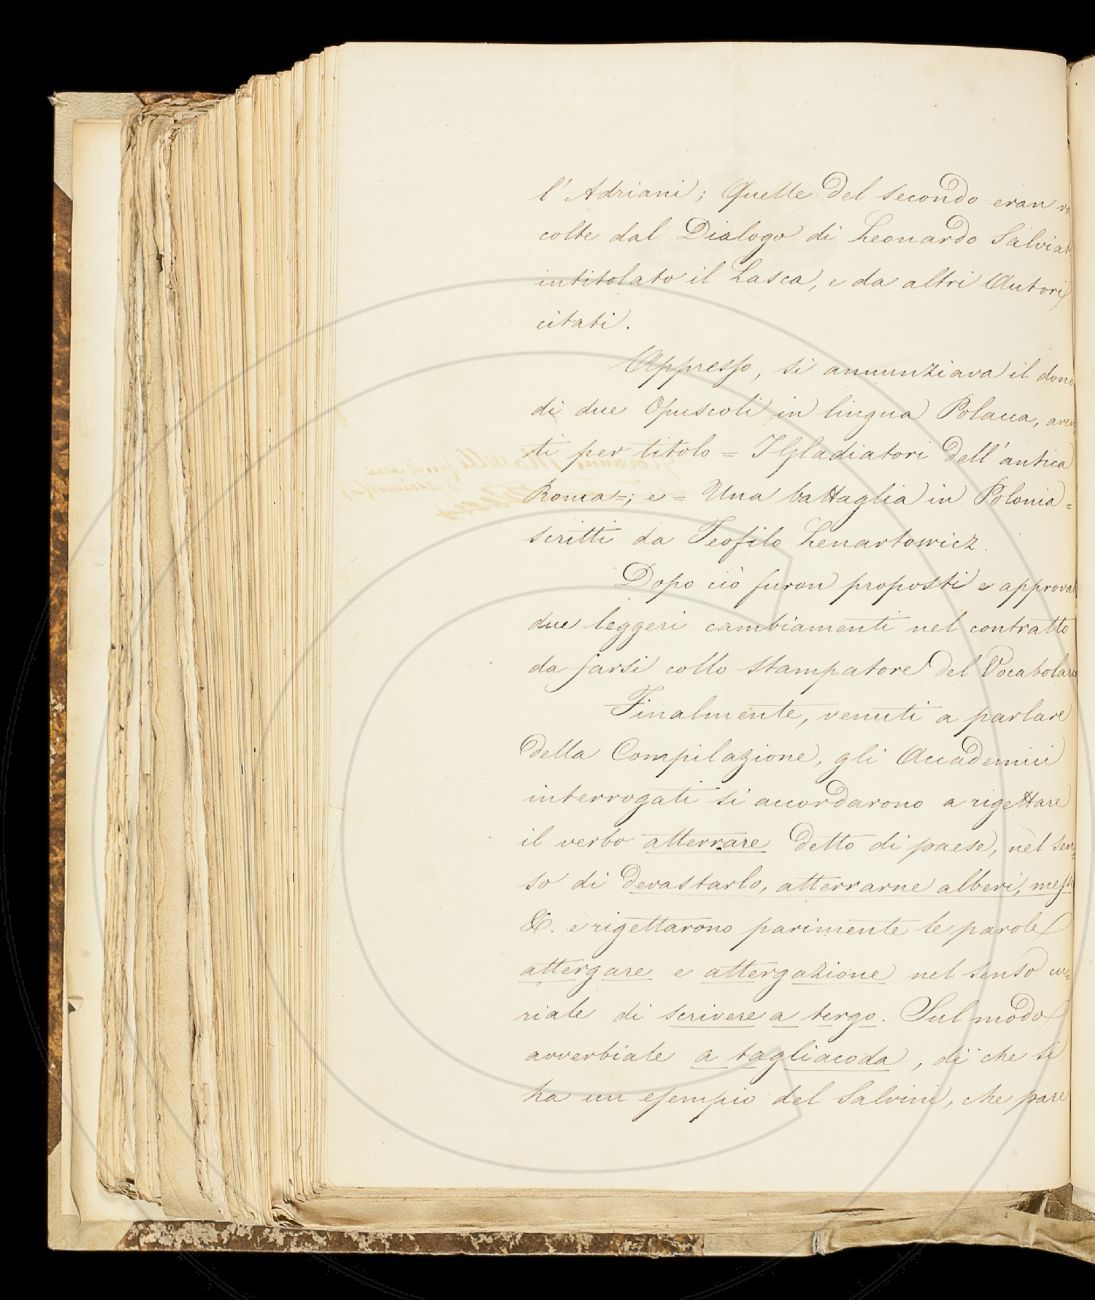 l'Adriani; Quelle del secondo eran
colte dal Dialogo di Leonardo Salviat
intitolato il Lasca, e da altri Autori
citati.
Appresso, si annunziava il dono
di due Opuscoli in lingua Polacca, aven
ti per titolo = I Gladiatori dell'antica
Roma =; e = Una battaglia in Polonia =
scritti da Teofilo Lenartowicz.
Dopo ciò furon proposti e approvat
due leggeri cambiamenti nel contratto
da farsi collo stampatore del Vocabolario
Finalmente, venuti a parlare
della Compilazione, gli Accademici
interrogati si accordarono a rigettare
il verbo atterrare detto di paese, nel sen=
so di devastarlo, atterrarne alberi, messi
&. e rigettarono parimente le parole
attergare e attergazione nel senso cu=
riale di scrivere a tergo. Sul modo
avverbiale a tagliacoda, di che si
ha un esempio del Salvini, che pare